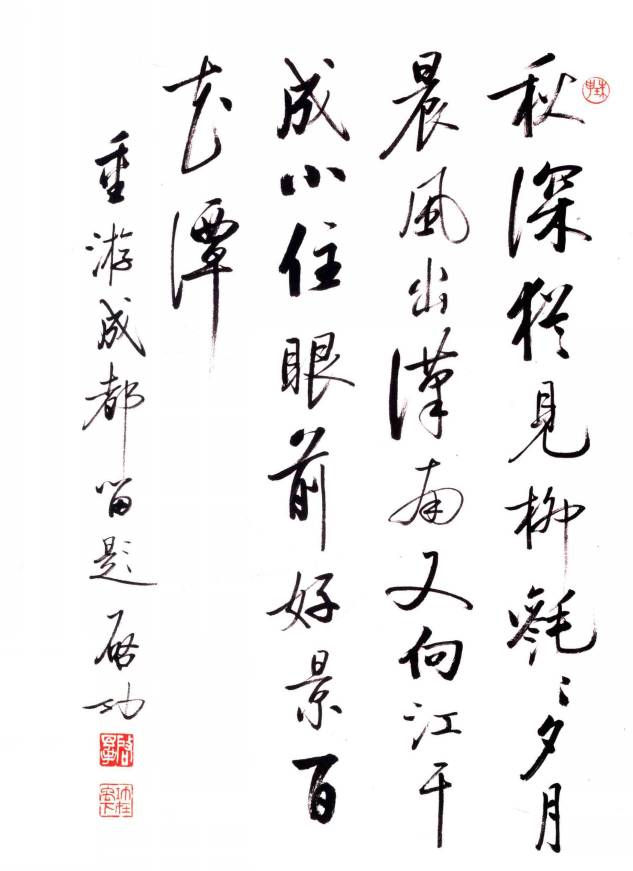 秋深猶見柳毿〻夕月
晨風出漢南又向江干
成小住眼前好景百
花潭
重游成都留題 啟功